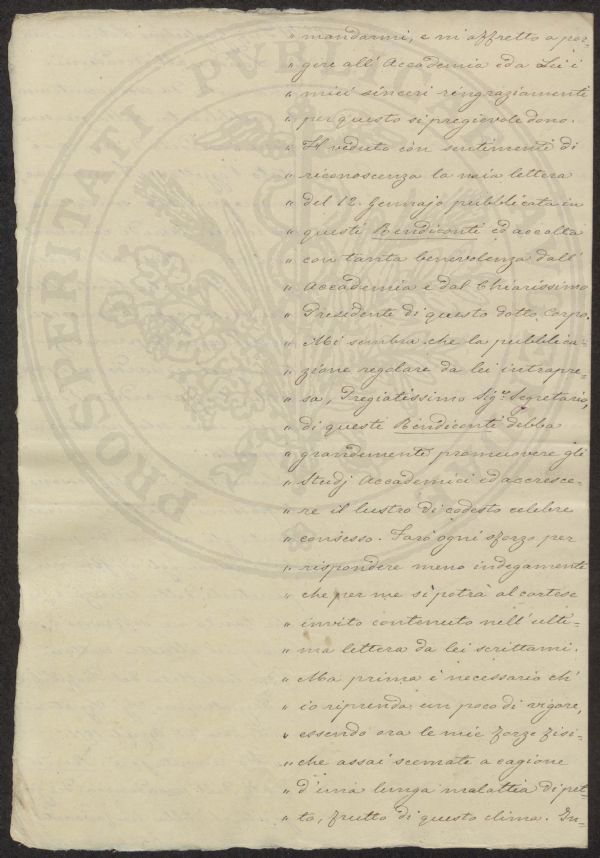 " mandarmi, e m'affretto a por-
" gere all'Accademia ed a Lei i
" miei sinceri ringraziamenti
" per questo sì pregievole dono.
" H veduto con sentimenti di
" riconoscenza la mia lettera
" del 12. Gennajo pubblicata in
" questi Rendiconti ed accolta
" con tanta benevolenza dall'
" Accademia e dal Chiarissimo
" Presidente di questo dotto Corpo.
" Mi sembra che la pubblica-
" zione regolare da lei intrapre-
" sa, Pregiatissimo Sigr. Segretario,
" di questi Rendiconti debba
" grandemente promuovere gli
" Studj Accademici ed accresce-
" re il lustro di codesto celebre
" consesso. Farò ogni sforzo per
" rispondere meno indegamente
" che per me si potrà al cortese
" invito contenuto nell'ulti-
" ma lettera da lei scrittami.
" Ma prima è necessario ch'
" io riprenda un poco di vigore,
" essendo ora le mie forze fisi-
" che assai scemate a cagione
" d'una lunga malattia di pet-
" to, frutto di questo clima. In-
PROSPERITATI PUBLICAE